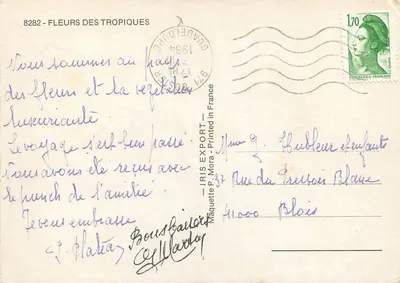 8282 - FLEURS DES TROPIQUES
Nous sommes au pays
des fleurs et la végétation
luxuriante.
Le voyage s'est bien passé
Nous avons été reçus avec
le punch de l'amitié.
Je vous embrasse
Bons Baisers
971
GUADELOUPE
1984
IRIS EXPORT
Maquette P. Mora - Printed in France
1,70
REPUBLIQUE FRANÇAISE
Mme G. Hubleur et enfants
37 Rue du Pressoir Blanc
41000 Blois